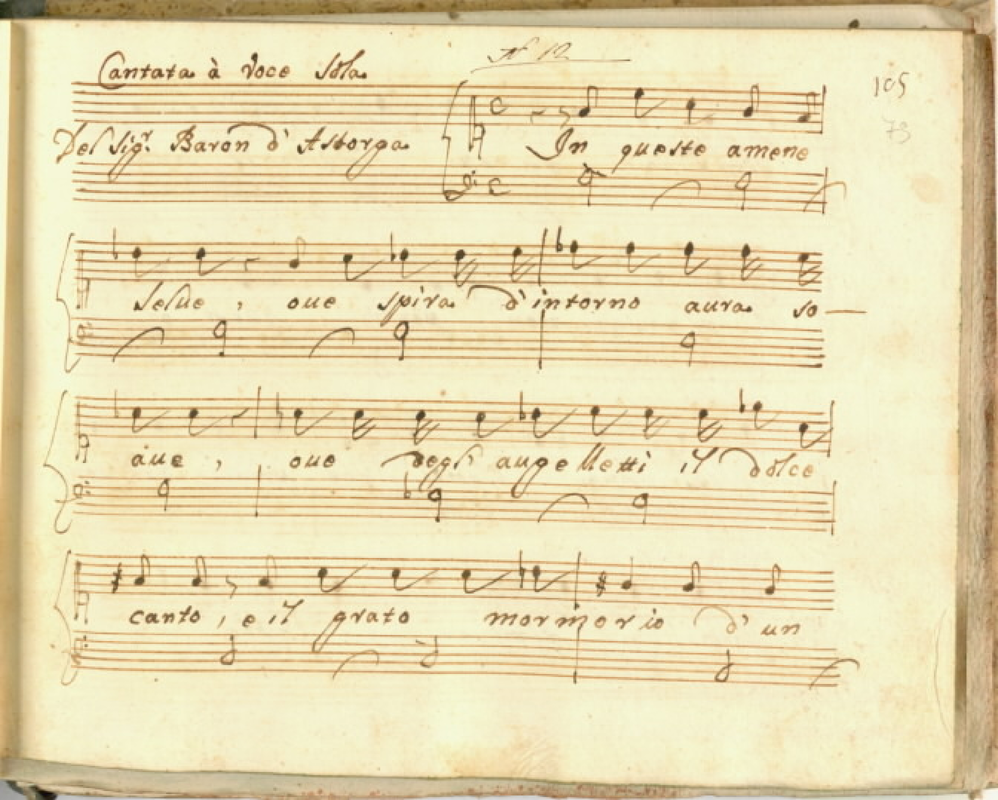 Cantata à Voce Sola
N° 12
105
73
Del Sig.r Baron d'Astorga
In queste amene
selue, oue spira d'intorno aura so—
aue, oue degl'augelletti il dolce
canto, e il grato mormorio d'un